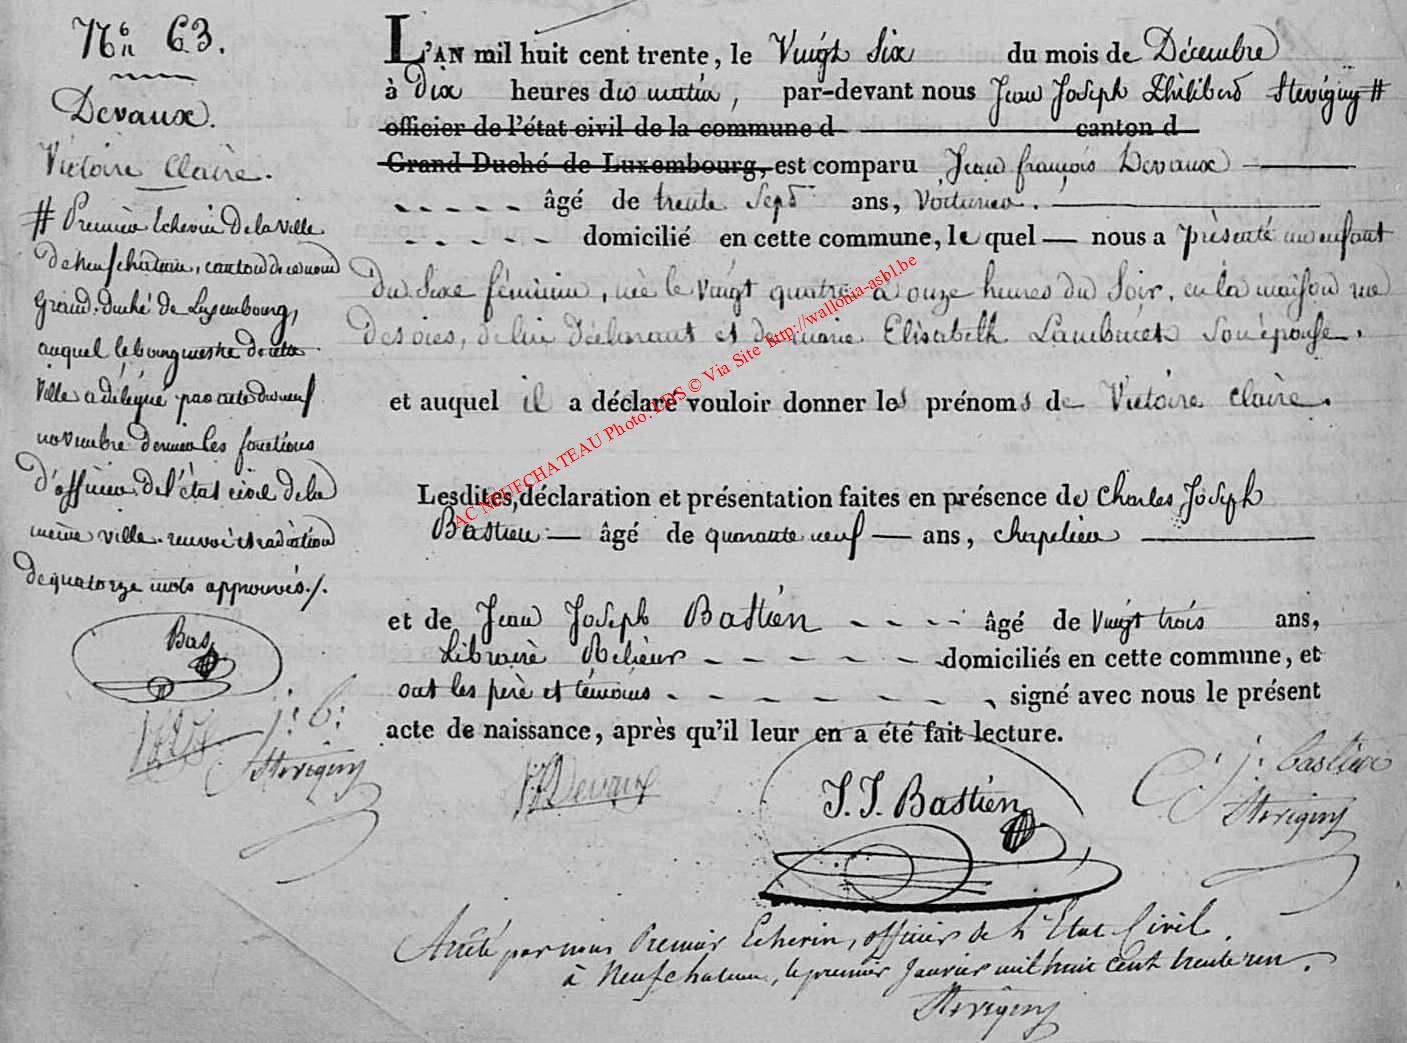 Nº 63.
Devaux.
Victoire Claire.
# Premier Echevin de la ville
de neufchateau, canton de ce nom
Grand-duché de Luxembourg,
auquel le bourgmestre de cette
ville a délégué par acte du neuf
novembre dernier les fonctions
d'officier de l'état civil de la
même ville. renvoi et radiation
de quatorze mots approuvés ./.
Bas
j: b:
Stevigny
L'AN mil huit cent trente, le Vingt Six du mois de Décembre
à dix heures du matin, par-devant nous Jean Joseph Philibert Stevigny #
officier de l'état civil de la commune d canton d
Grand Duché de Luxembourg, est comparu Jean françois Devaux
âgé de trente Sept ans, Voiturier.
domicilié en cette commune, lequel nous a présenté un enfant
du Sexe féminin, née le Vingt quatre à onze heures du Soir, en la maison rue
des oies, de lui déclarant et de marie Elisabeth Lambinet Son épouse.
et auquel il a déclaré vouloir donner les prénoms de Victoire Claire.
Lesdites déclaration et présentation faites en présence de Charles Joseph
Bastien âgé de quarante neuf ans, chapelier
et de Jean Joseph Bastien âgé de Vingt trois ans,
Libraire Relieur domiciliés en cette commune, et
ont les père et témoins signé avec nous le présent
acte de naissance, après qu'il leur en a été fait lecture.
JFDevaux
J. J. Bastien
C: j: bastien
Stevigny
Arrêté par nous Premier Echevin, officier de L'Etat Civil
à Neufchateau, le premier Janvier mil huit cent trente un.
Stevigny
AC NEUFCHATEAU Photo: LDS © Via Site http://wallonia-asbl.be